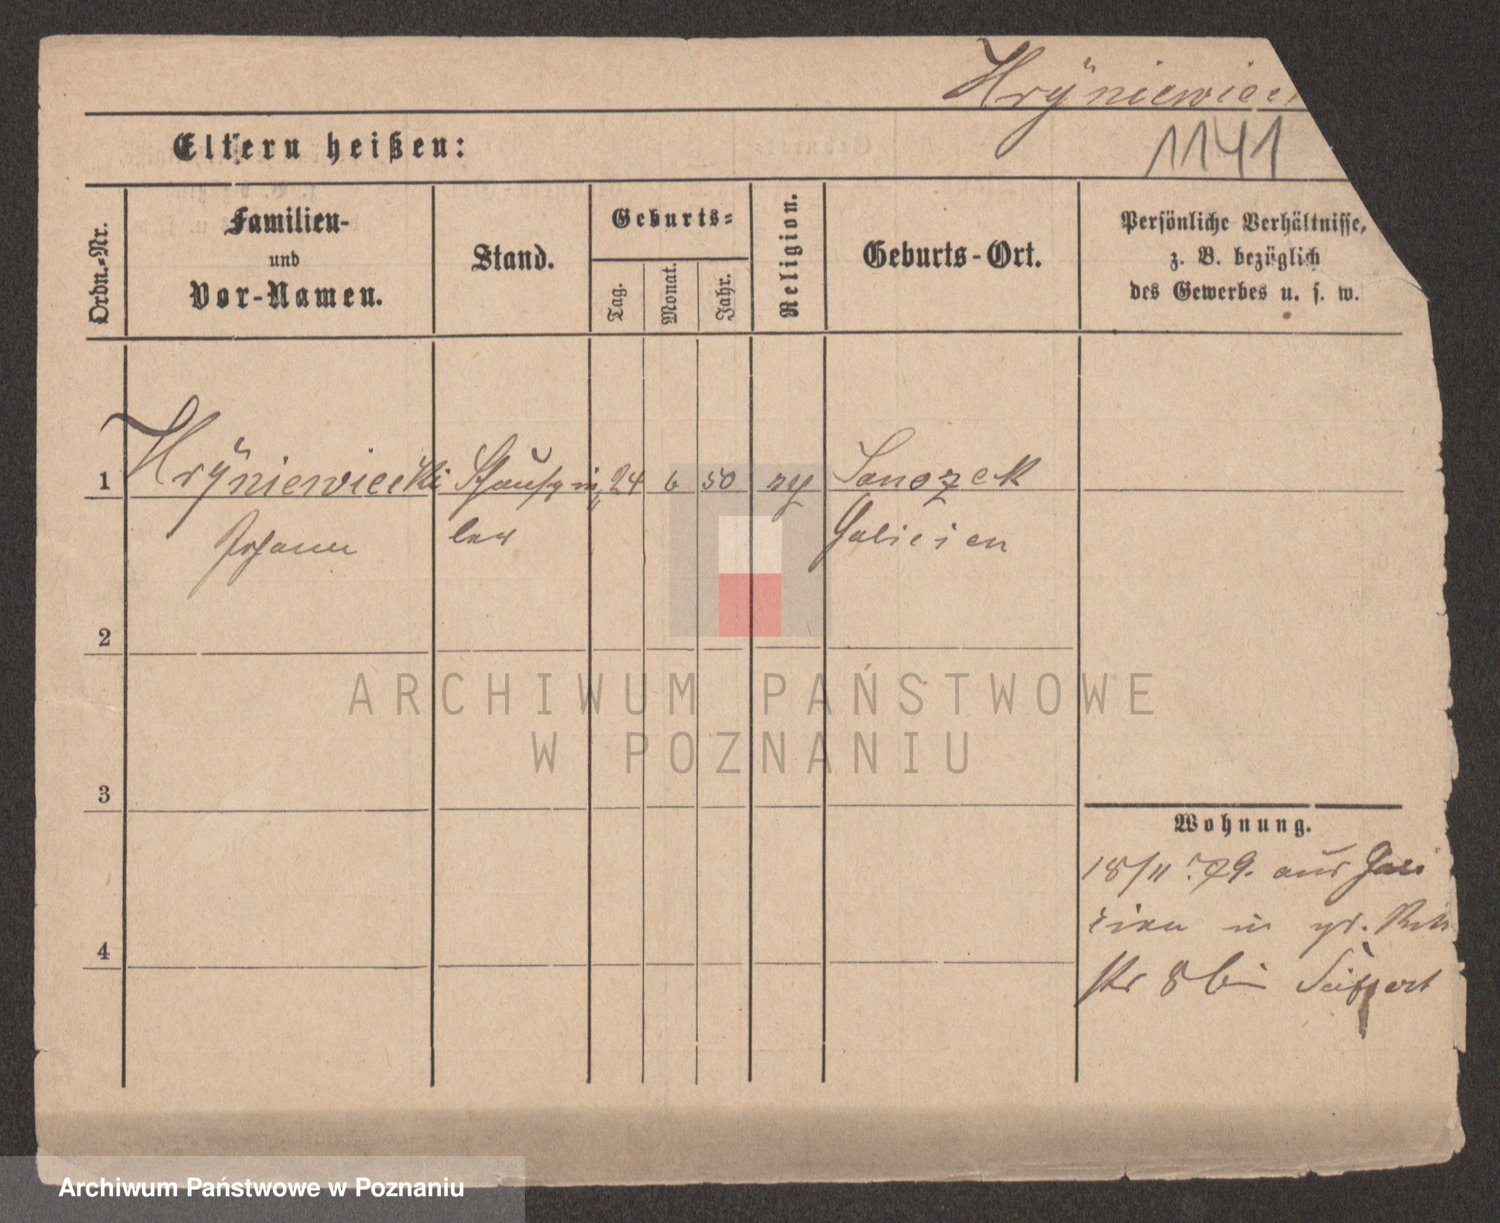 Hrÿniewieck
1141
Eltern heißen:
Ordn.-Nr.
Familien-
und
Vor-Namen.
Stand.
Geburts-
Tag.
Monat.
Jahr.
Religion.
Geburts-Ort.
Persönliche Verhältnisse,
z. B. bezüglich
des Gewerbes u. s. w.
1
Hrÿniewiecki
Schauspie
24
6
50
Sanozek
Johann
ler
Galicien
2
ARCHIWUM PAŃSTWOWE
W POZNANIU
3
Wohnung.
18/11 79. aus Gali
zien in gr. Rit
str 8 bei Seiffert
4
Archiwum Państwowe w Poznaniu